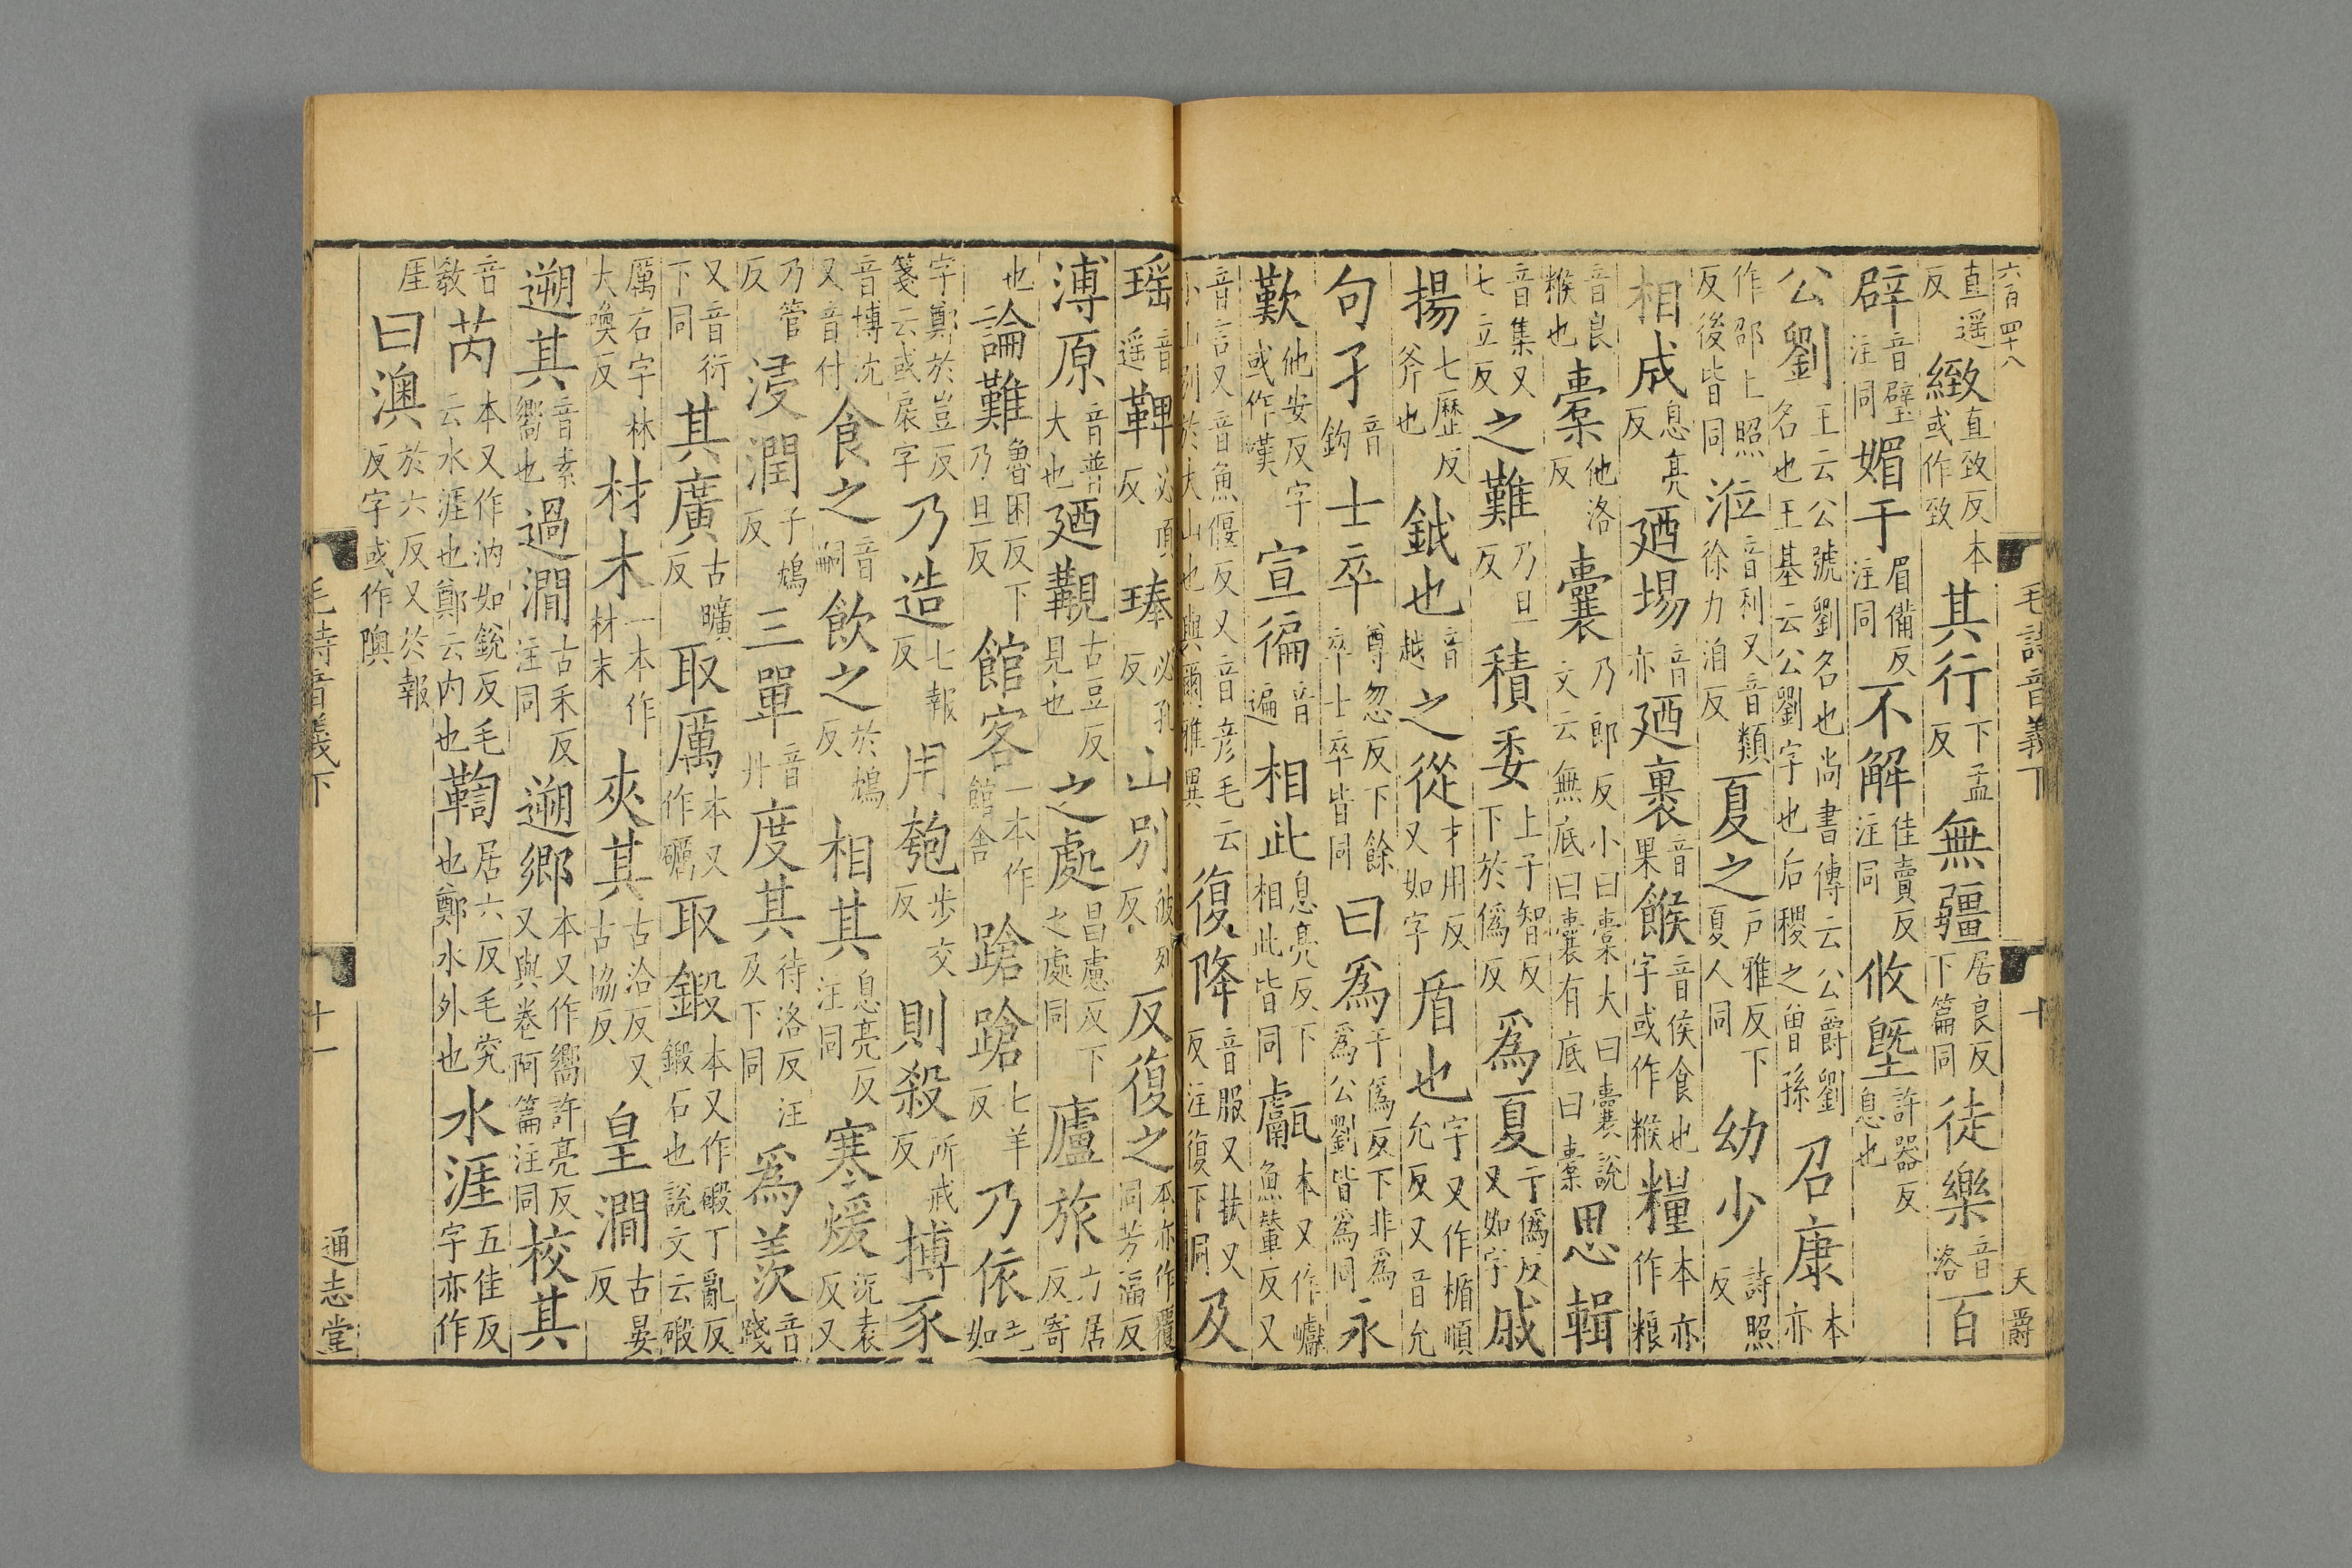 六百四十八　毛詩音義下　十　天爵
直遥反緻直致反本或作致其行下孟反無疆居良反下篇同徒樂音洛百
辟音璧注同媚于眉備反注同不解佳賣反注同攸墍許器反息也
公劉王云公號劉名也尚書傳云公爵劉名也王基云公劉字也后稷之曾孫召康本亦
作邵上照反後皆同涖音利又音類徐力洎反夏之戶雅反下夏人同幼少詩照反
相成息亮反廼埸音亦廼裹音果餱音侯食也字或作糇糧本亦作粮
音良糇也橐他洛反囊乃郎反小曰橐大曰囊說文云無底曰囊有底曰橐思輯
音集又七立反之難乃旦反積委上子智反下於僞反爲夏于僞反又如字戚
揚七歷反斧也鉞也音越之從才用反又如字盾也字又作楯順允反又音允
句孑音鈎士卒尊忽反下餘卒士卒皆同曰爲于僞反下非爲爲公劉皆爲同永
歎他安反字或作嘆宣徧音遍相此息亮反下相此皆同甗本又作巘魚輦反又
音言又音魚偃反又音彥毛云小山別於大山也與爾雅異復降音服又扶又反注復下同及
瑶音遥鞞必頂反琫必孔反山別彼列反反復之本亦作覆同芳福反
溥原音普大也廼覯古豆反見也之處昌慮反下之處同廬旅力居反寄
也論難魯困反下乃旦反館客一本作館舍蹌蹌七羊反乃依毛如
字鄭於豈反箋云或扆字乃造七報反用匏步交反則殺所戒反搏豕
音博沈又音付食之音嗣飲之於鴆反相其息亮反注同寒煖況袁反又
乃管反浸潤子鴆反三單音丹度其待洛反注及下同爲羨音踐
又音衍下同其廣古曠反取厲本又作礪取鍛本又作碫丁亂反鍛石也說文云碫
厲石字林大喚反材木一本作材末夾其古洽反又古協反皇澗古晏反
遡其音素嚮也過澗古禾反注同遡鄉本又作嚮許亮反又與卷阿篇注同校其
音敎芮本又作汭如銳反毛云水涯也鄭云内也鞫居六反毛究也鄭水外也水涯五佳反字亦作
厓曰澳於六反又於報反字或作隩
毛詩音義下　十一　通志堂